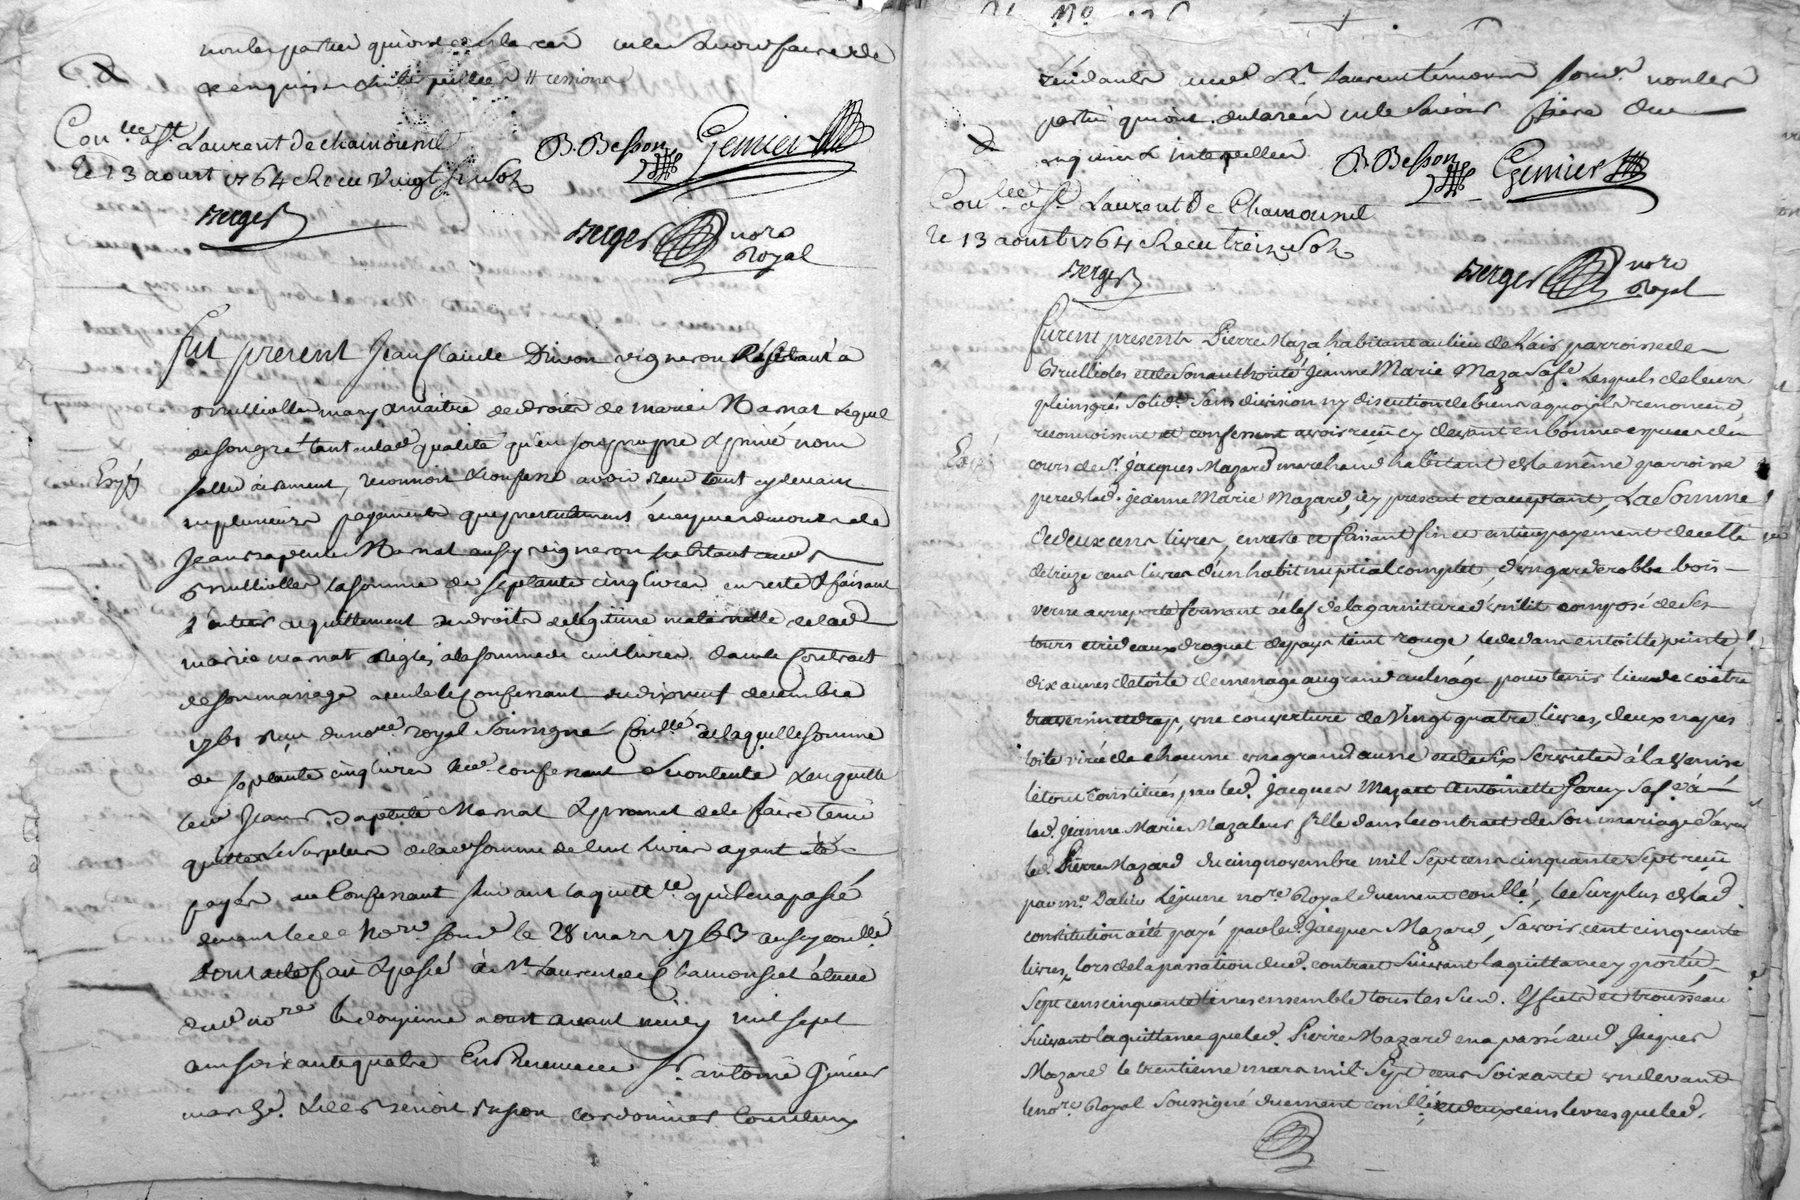 non les parties qui ont declaré ne le Savoir faire de
ce enquis
Con.lle a St Laurent de chamousset
le 13 aoust 1764 Recu vingt six Sols
B. Besson Genier
Berger
Berger no.re
Royal
Fut present Jean Claude Dumon vigneron Residant a
Brullioles mary & maitre des droits de marie Marnat Lequel
de son gré tant en lad. qualité qu'en son propre & privé nom
reconnoit & confesse avoir reçu tout cy devant
Expé
en plusieurs payements que presentement
Jean Baptiste Marnat aussy vigneron habitant aud.
Brullioles la somme de Septante cinq livres en reste & faisant
l'entier acquittement des droits de legitime maternelle de lad.
marie marnat reglés a la somme de cent livres dans le Contract
de son mariage avec le Confessant du dix neuf decembre
1761 reçu du no.re royal Soussigné Con.llé de laquelle somme
de septante cinq livres led. confessant Se contente & en quitte
led. Jean Baptiste Marnat & promet de le faire tenir
quitte Le Surplus de lad. somme de Cent Livres ayant été
payés au Confessant Suivant la quitt.ce qu'il en a passé
devant led. No.re souss.é le 28 mars 1763 aussy con.llé
Dont acte fait & passé à St Laurent de Chamousset étude
dud. no.re le douzieme aoust avant midy mil sept
cent soixante quatre En Presence de Sr antoine Genier
march.d & de Benoit Besson cordonnier
residants aud. St Laurent témoins Souss.és non les
parties qui ont declaré ne le Savoir faire de ce
enquis & interpellés
B. Besson Genier
Con.llé a St Laurent De Chamousset
le 13 aoust 1764 Recu treize Sols
Berger
Berger no.re
Royal
Furent presents Pierre Mazard habitant au lieu de Lair parroisse de
Brullioles et de son authorité Jeanne Marie Mazard Sa fe. Lesquels de leurs
pleins grés Solid.t Sans division ny discution de biens a quoy ils renoncent,
reconnoissent et confessent avoir reçu cy devant en bonnes especes du
Expé
cours de Sr. Jacques Mazard marchand habitant de la même parroisse
pere de lad. Jeanne Marie Mazard, icy present et acceptant, La Somme
de deux cens livres, en reste et faisant fin et entier payement de celle
de treize cens livres d'un habit nuptial complet, d'un garderobbe bois
verne a une porte fermant à clef de la garniture d'un lit composé de Ses
tours et rideaux droguet de pays teint rouge le dedans en toille peinte
dix aunes de toile de menage au grand aulnage pour tenir lieu de coëtre
traversin et drap, une couverture de Vingt quatre livres, deux napes
toile virée de chacune une grand aune et de Six Serviettes à la Venise
le tout constitués par led. Jacques Mazard Antoinette Farey Sa fe. à
lad. Jeanne Marie Mazard leur fille dans le contract de Son mariage d'avec
led. Pierre Mazard du cinq novembre mil Sept cens cinquante Sept reçu
par m.e Dalin Lejeune no.re Royal duement con.llé, le Surplus de lad.
constitution a été payé par led. Jacques Mazard, Savoir cent cinquante
livres, lors de la passation dud. contract Suivant la quittance y portée
Sept cens cinquante livres ensemble tous les Susd. Effets et trousseau
Suivant la quittance que led. Pierre Mazard en a passé aud. Jacques
Mazard le trentieme mars mil Sept cens Soixante un devant
le no.re Royal Soussigné duement con.llé et deux cens livres que led.